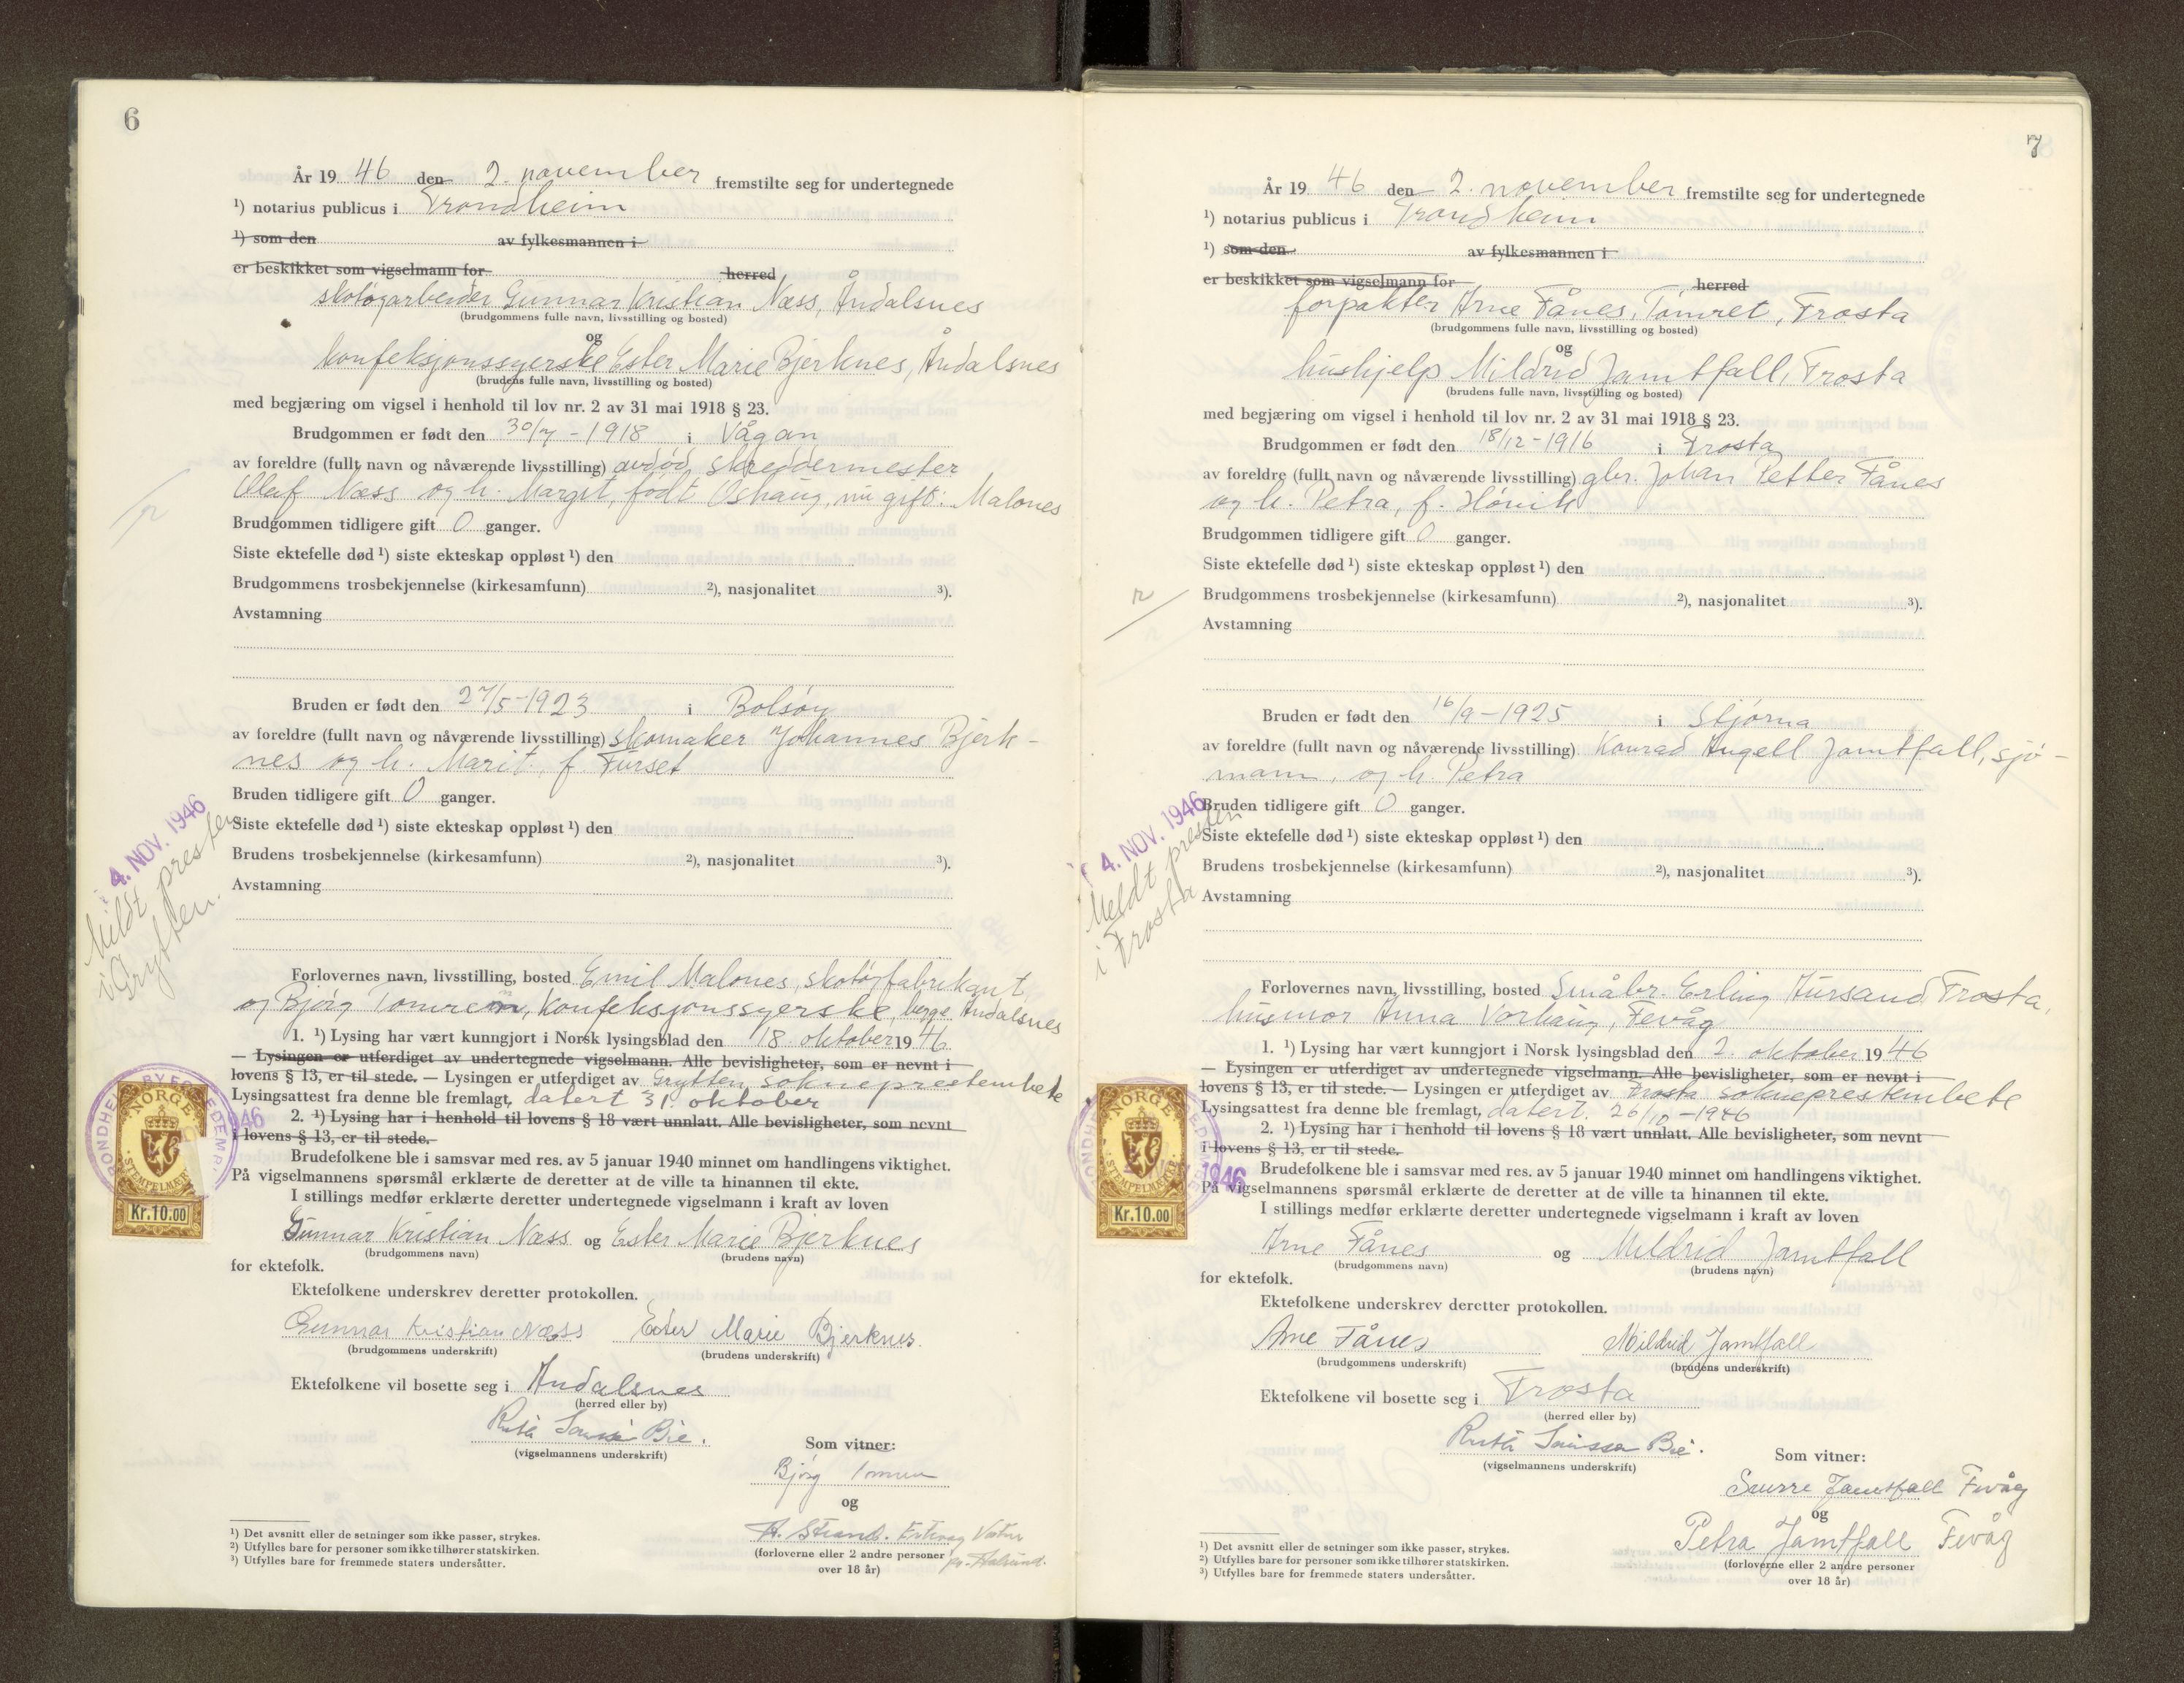 6
År 19 46 den 2. november fremstilte seg for undertegnede
¹) notarius publicus i Trondheim
¹) som den av fylkesmannen i
er beskikket som vigselmann for herred
skotøyarbeider Gunnar Kristian Næss, Åndalsnes
(brudgommens fulle navn, livsstilling og bosted)
og
konfeksjonssyerske Ester Marie Bjerknes, Åndalsnes
(brudens fulle navn, livsstilling og bosted)
med begjæring om vigsel i henhold til lov nr. 2 av 31 mai 1918 § 23.
Brudgommen er født den 30/7-1918 i Vågan
av foreldre (fullt navn og nåværende livsstilling) avdød skreddermester
Olaf Næss og h. Margit, født Oshaug, nu gift: Malones
Brudgommen tidligere gift 0 ganger.
Siste ektefelle død ¹) siste ekteskap oppløst ¹) den
Brudgommens trosbekjennelse (kirkesamfunn) ²), nasjonalitet ³).
Avstamning
Bruden er født den 27/5-1923 i Bolsøy
av foreldre (fullt navn og nåværende livsstilling) skomaker Johannes Bjerk-
nes og h. Marit, f. Furset
Bruden tidligere gift 0 ganger.
Siste ektefelle død ¹) siste ekteskap oppløst ¹) den
Brudens trosbekjennelse (kirkesamfunn) ²), nasjonalitet ³).
Avstamning
4. NOV. 1946
Meldt presten
i Grytten.
Forlovernes navn, livsstilling, bosted Emil Malones, skotøyfabrikant
og Bjørg Tomren, konfeksjonssyerske, begge Åndalsnes
1. ¹) Lysing har vært kunngjort i Norsk lysingsblad den 18. oktober 19 46.
— Lysingen er utferdiget av undertegnede vigselmann. Alle bevisligheter, som er nevnt i
lovens § 13, er til stede. — Lysingen er utferdiget av Grytten sokneprestembete
Lysingsattest fra denne ble fremlagt, datert 31. oktober
2. ¹) Lysing har i henhold til lovens § 18 vært unnlatt. Alle bevisligheter, som nevnt
i lovens § 13, er til stede.
Brudefolkene ble i samsvar med res. av 5 januar 1940 minnet om handlingens viktighet.
På vigselmannens spørsmål erklærte de deretter at de ville ta hinannen til ekte.
I stillings medfør erklærte deretter undertegnede vigselmann i kraft av loven
NORGE
STEMPELMERKE
Kr.10.00
Gunnar Kristian Næss og Ester Marie Bjerknes
(brudgommens navn) (brudens navn)
for ektefolk.
Ektefolkene underskrev deretter protokollen.
Gunnar Kristian Næss Ester Marie Bjerknes.
(brudgommens underskrift) (brudens underskrift)
Ektefolkene vil bosette seg i Åndalsnes
(herred eller by)
Bie.
(vigselmannens underskrift)
Som vitner:
Bjørg Tomren
og
A. Strand.
(forloverne eller 2 andre personer
over 18 år)
¹) Det avsnitt eller de setninger som ikke passer, strykes.
²) Utfylles bare for personer som ikke tilhører statskirken.
³) Utfylles bare for fremmede staters undersåtter.
7
År 19 46 den 2. november fremstilte seg for undertegnede
¹) notarius publicus i Trondheim
¹) som den av fylkesmannen i
er beskikket som vigselmann for herred
forpakter Arne Fånes, Tømret, Frosta
(brudgommens fulle navn, livsstilling og bosted)
og
hushjelp Mildrid Jamtfall, Frosta
(brudens fulle navn, livsstilling og bosted)
med begjæring om vigsel i henhold til lov nr. 2 av 31 mai 1918 § 23.
Brudgommen er født den 18/12-1916 i Frosta
av foreldre (fullt navn og nåværende livsstilling) gbr. Johan Petter Fånes
og h. Petra, f. Høvik
Brudgommen tidligere gift 0 ganger.
Siste ektefelle død ¹) siste ekteskap oppløst ¹) den
Brudgommens trosbekjennelse (kirkesamfunn) ²), nasjonalitet ³).
Avstamning
Bruden er født den 16/9-1925 i Stjørna
av foreldre (fullt navn og nåværende livsstilling) Konrad Angell Jamtfall, sjø-
mann, og h. Petra
Bruden tidligere gift 0 ganger.
Siste ektefelle død ¹) siste ekteskap oppløst ¹) den
Brudens trosbekjennelse (kirkesamfunn) ²), nasjonalitet ³).
Avstamning
4. NOV. 1946
Meldt presten
i Frosta
Forlovernes navn, livsstilling, bosted Småbr. Erling Aursand, Frosta,
husmor Anna Vorhaug, Fevåg
1. ¹) Lysing har vært kunngjort i Norsk lysingsblad den 2. oktober 19 46
— Lysingen er utferdiget av undertegnede vigselmann. Alle bevisligheter, som er nevnt i
lovens § 13, er til stede. — Lysingen er utferdiget av Frosta sokneprestembete
Lysingsattest fra denne ble fremlagt, datert. 26/10-1946
2. ¹) Lysing har i henhold til lovens § 18 vært unnlatt. Alle bevisligheter, som nevnt
i lovens § 13, er til stede.
Brudefolkene ble i samsvar med res. av 5 januar 1940 minnet om handlingens viktighet.
På vigselmannens spørsmål erklærte de deretter at de ville ta hinannen til ekte.
I stillings medfør erklærte deretter undertegnede vigselmann i kraft av loven
NORGE
STEMPELMERKE
Kr.10.00
1946
Arne Fånes og Mildrid Jamtfall
(brudgommens navn) (brudens navn)
for ektefolk.
Ektefolkene underskrev deretter protokollen.
Arne Fånes Mildrid Jamtfall
(brudgommens underskrift) (brudens underskrift)
Ektefolkene vil bosette seg i Frosta
(herred eller by)
Bie.
(vigselmannens underskrift)
Som vitner:
Jamtfall Fevåg
og
Petra Jamtfall Fevåg
(forloverne eller 2 andre personer
over 18 år)
¹) Det avsnitt eller de setninger som ikke passer, strykes.
²) Utfylles bare for personer som ikke tilhører statskirken.
³) Utfylles bare for fremmede staters undersåtter.